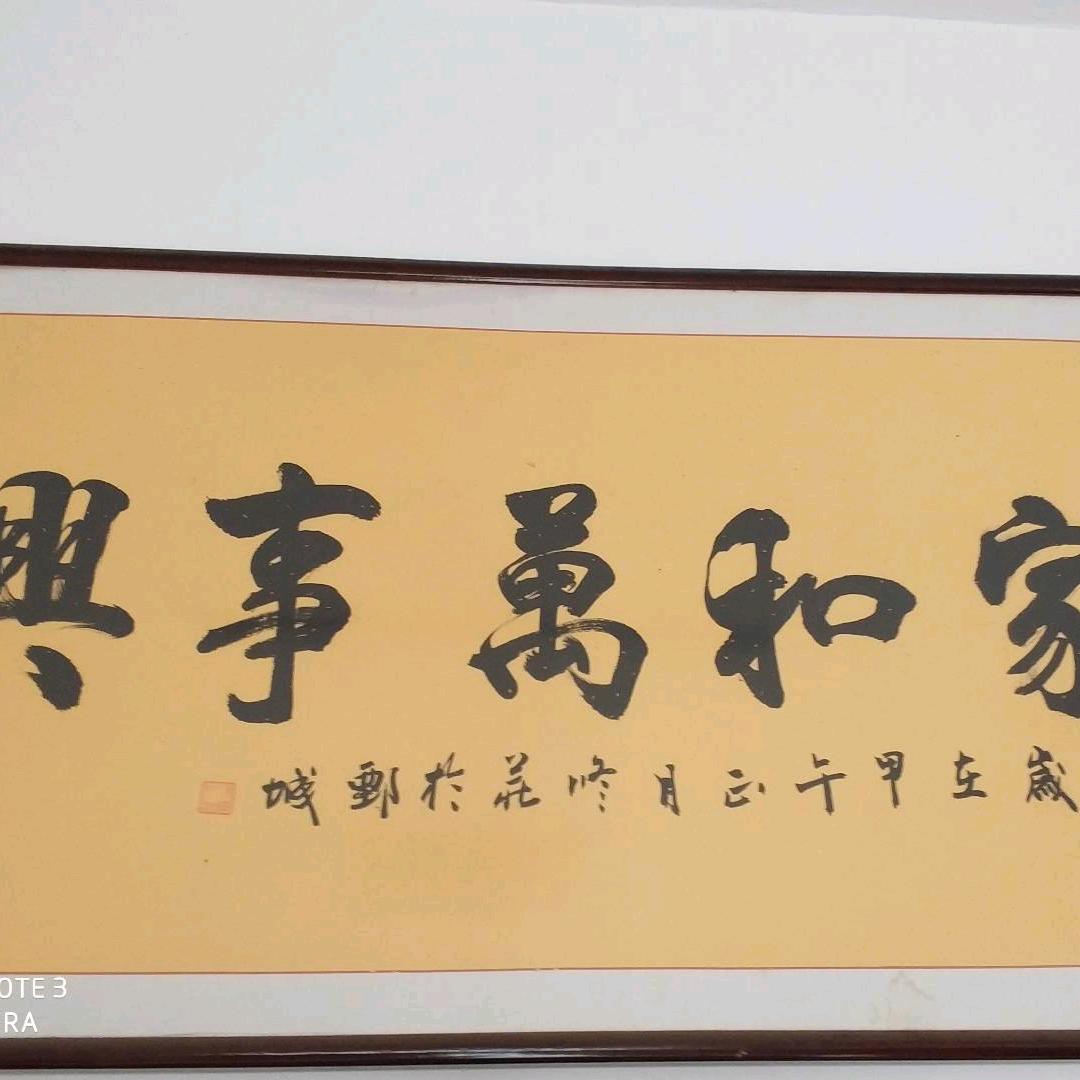 家和萬事興
歲在甲午正月修莊於鄄城
OTE 3
RA